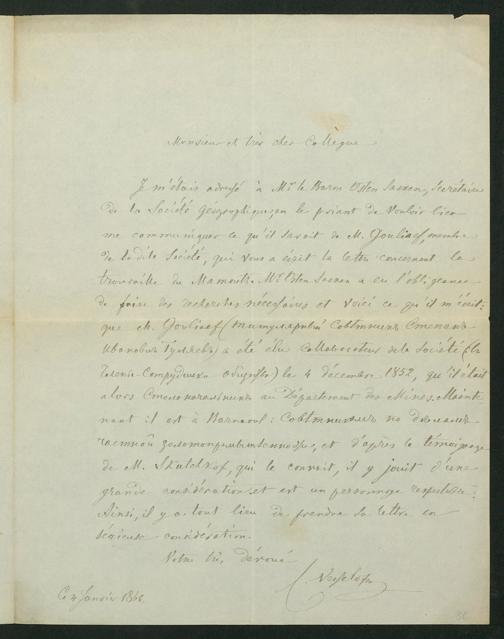 Monsieur et très cher Collègue
Je m'étais adressé à Mr. le Baron Osten Sacken, Secrétaire
de la Société Géographique, en le priant de vouloir bien
me communiquer ce qu'il savait de M. Gouliaef, membre
de la dite Société, qui vous a écrit la lettre concernant la
trouvaille du Mamouth. Mr. Osten Sacken a eu l'obligeance
de faire des recherches nécessaires et voici ce qu'il m'écrit:
que M. Gouliaef (Титулярный Советникъ Степанъ
Ивановичъ Гуляевъ) a été élu Collaborateur de la Société
Членъ-Сотрудникъ le 4 décembre 1852, qu'il était
alors Столоначальникъ au Département des Mines. Mainte-
nant il est à Barnaoul: Совѣтникъ по дѣламъ
частной золотопромышленности, et d'après le témoignage
de M. Skatchkof, qui le connait, il y jouit d'une
grande considération et est un personnage respectable.
Ainsi, il y a tout lieu de prendre sa lettre en
sérieuse considération.
Votre très dévoué
C. Vesselofski
Ce Janvier 1866